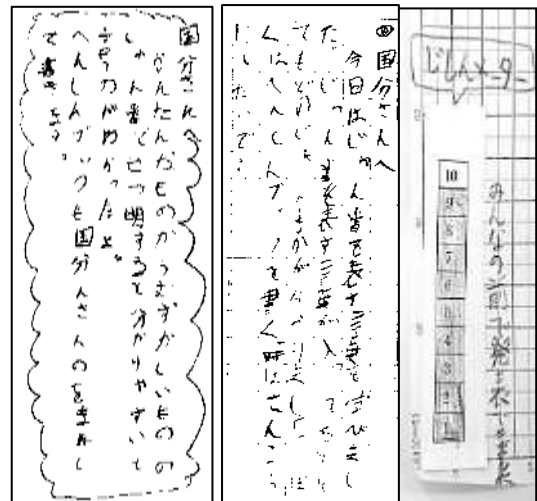 国分さんへ
かんたんなものからむずかしいものの
じゅん番でせつ明すると分かりやすいと
言うのがわかったよ。
へんしんブックも国分さんのをまねし
て書きます。
国分さんへ
今日はじゅん番を表す言葉を学びまし
た。じゅん番を表す言葉が入っ
くはへんしんブックを書く時はさんこう
にしたいです
じしんメーター
10
9
8
7
6
5
4
3
2
1
みんなの前で発表できた